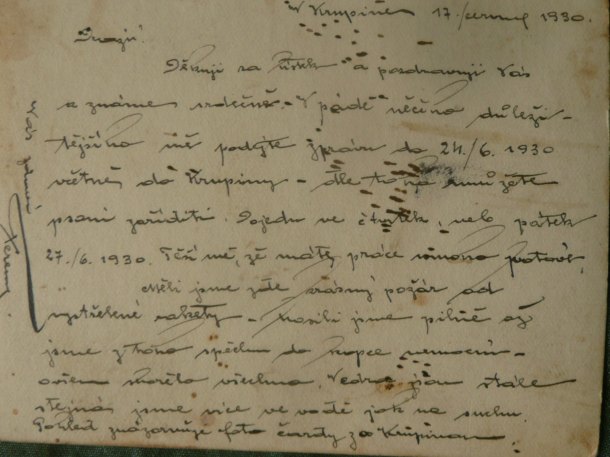 V Krupině 17./června 1930.
Drazí!
Děkuji za lístek a pozdravuji Vás
a známé srdečně. V pádě něčeho důleži-
tějšího mě podejte zprávu do 24./6. 1930
včetně do Krupiny – dle toho můžete
psaní zaříditi. Pojedu ve čtvrtek, nebo pátek
27./6. 1930. Těší mě, že máte práce mnoho
Měli jsme zde požár od
vystřelené rakety – hasili jsme pilně až
jsme z toho spěchu do kopce
ovšem hořelo všechno. Vedra jsou stále
stejná, jsme více ve vodě jak na suchu.
Pohled znázorňuje foto čardy za Krupinou.
Váš